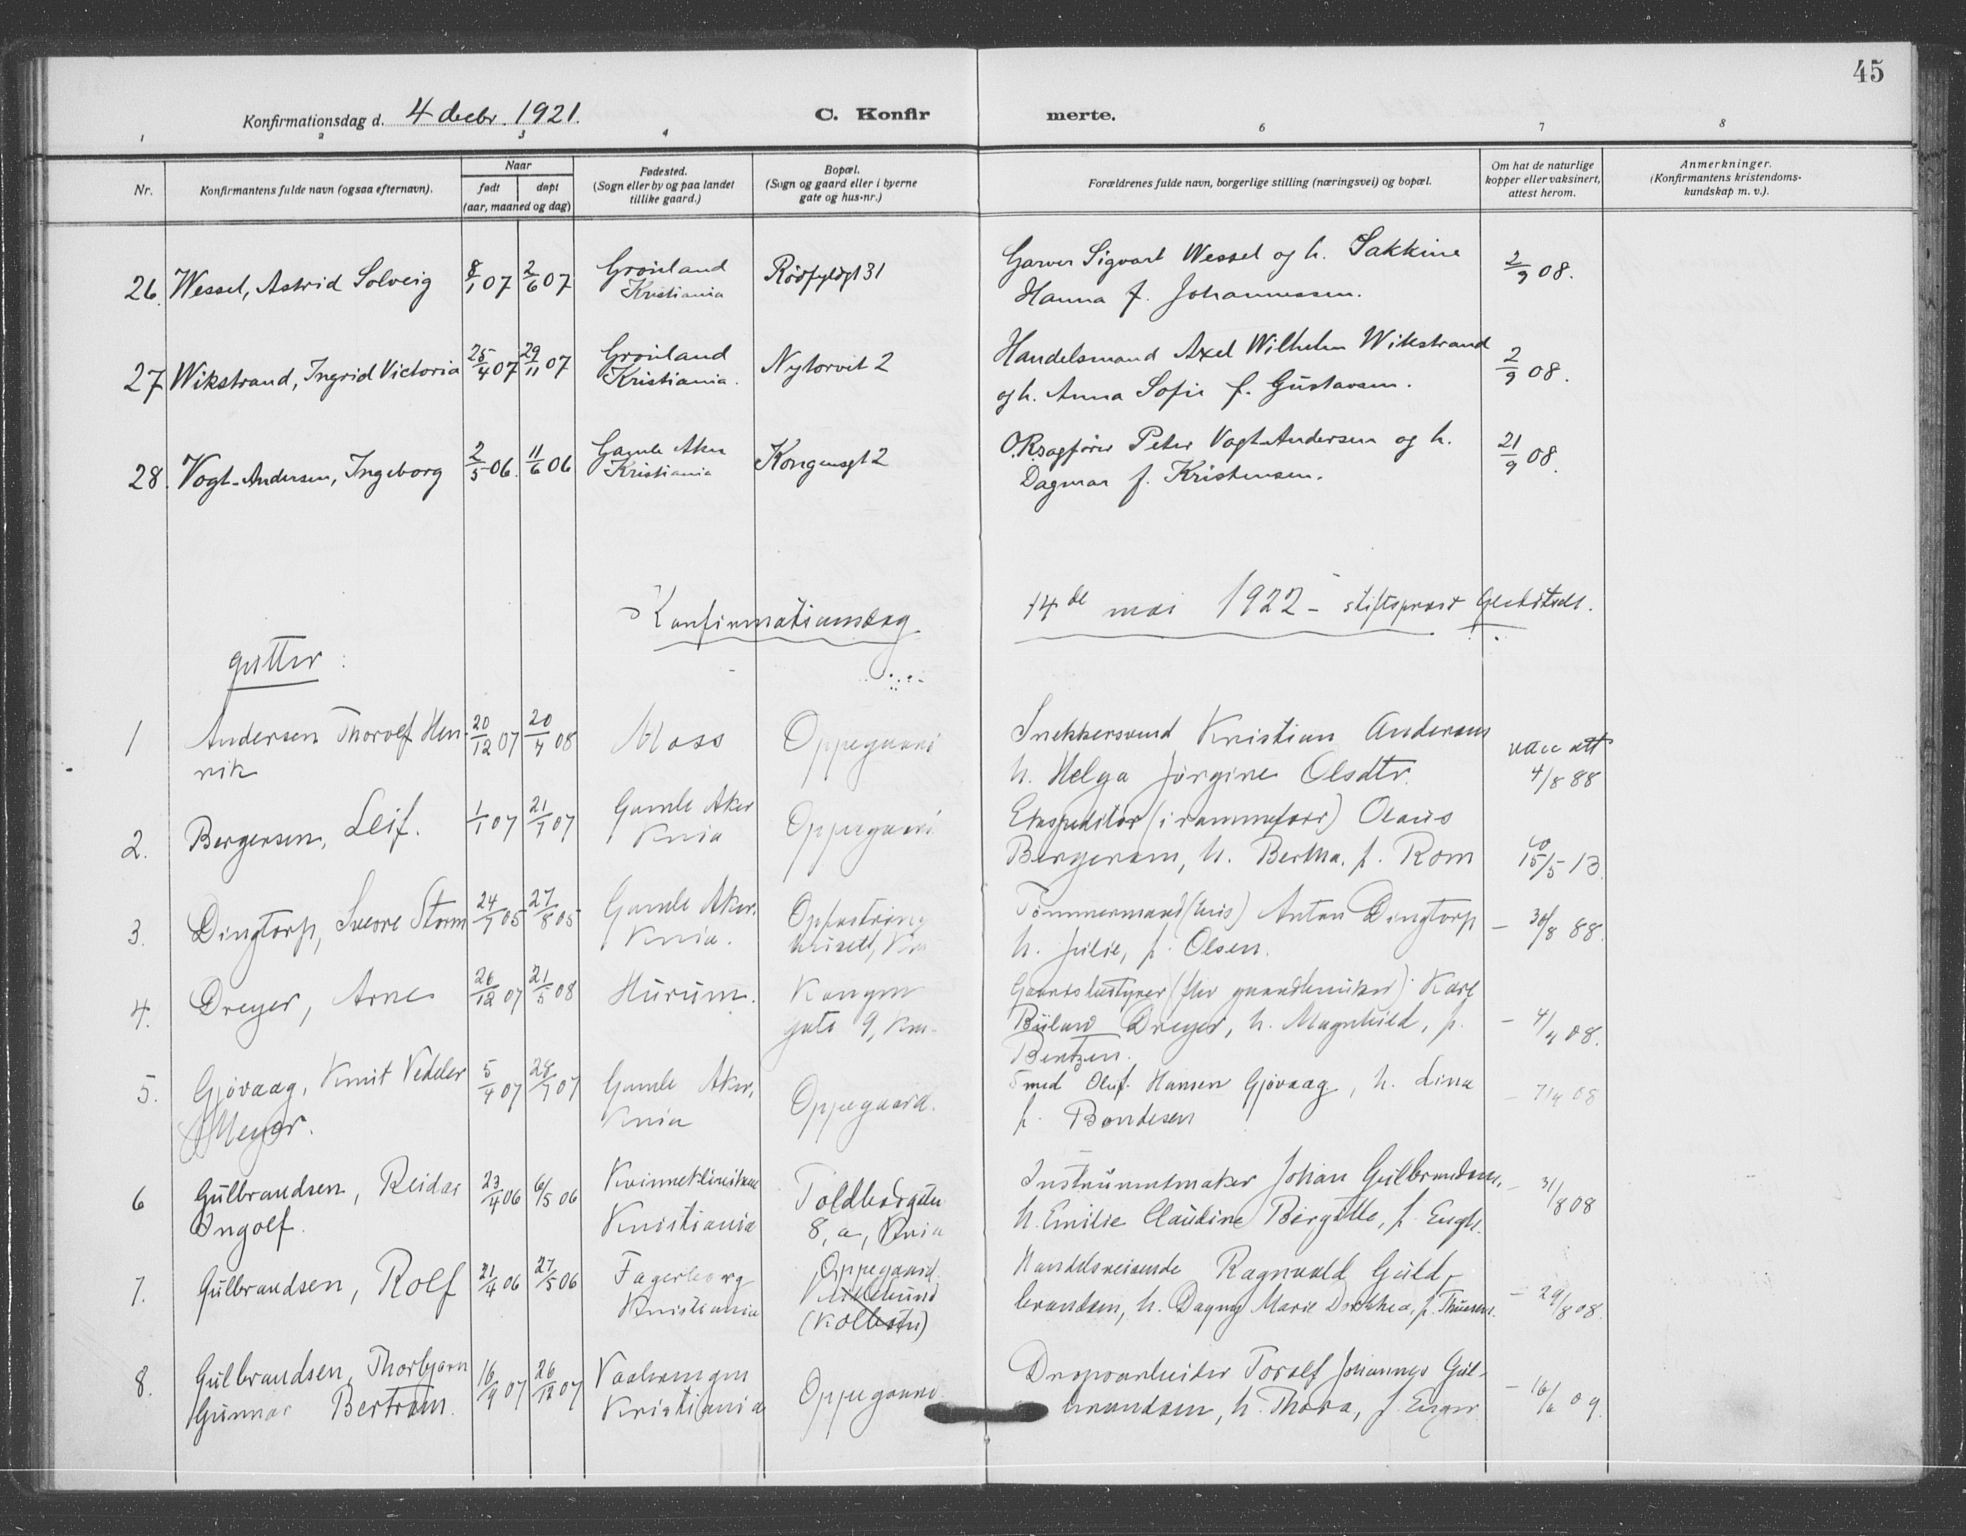 45
Konfirmationsdag d. 4 decbr. 1921.
C. Konfirmerte.
1 2 3 4 6 7 8
Nr.
Konfirmantens fulde navn (ogsaa efternavn).
Naar
født døpt
(aar, maaned og dag)
Fødested.
(Sogn eller by og paa landet
tillike gaard.)
Bopæl.
(Sogn og gaard eller i byerne
gate og hus-nr.)
Forældrenes fulde navn, borgerlige stilling (næringsvei) og bopæl.
Om hat de naturlige
kopper eller vaksinert,
attest herom.
Anmerkninger.
(Konfirmantens kristendoms-
kundskap m. v.).
26. Wessel, Astrid Solveig 8/1 07 2/6 07 Grønland Kristiania 31 Garver Sigvart Wessel og h. Sakkine 2/9 08.
Hanna f. Johannessen.
27 Wikstrand, Ingrid Victoria 25/4 07 29/11 07 Grønland Kristiania. Nytorvet 2 Handelsmand Axel Wilhelm Wikstrand 2/9 08.
og h. Anna Sofie f. Gustavsen.
28. Vogt-Andersen, Ingeborg 2/5 06. 11/6 06 Gamle Aker Kristiania Kongensgt 2 O.R.sagfører Peter Vogt-Andersen og h. 21/9 08.
Dagmar f. Kristensen.
Konfirmationsdag 14de mai 1922 - stiftsprost
gutter:
1 Andersen Thorolf Hen- 20/12 07 20/4 08 Moss Oppegaard Snekkersvend Kristian Andersen
rik h. Helga Jørgine Olsdtr. 4/8 88
2. Bergersen, Leif. 1/1 07 21/7 07 Gamle Aker Oppegaard Ekspeditør (i rammeforr) Olaus
Knia Bergersen, h. Bertha, f. Rom 15/5 13.
3. Dingtorp, Sverre Storm 24/7 05 27/8 05 Gamle Aker, Tømmermand (hus) Anton Dingtorp - 30/8 88.
Knia. h. Julie, f. Olsen.
4. Dreyer, Arne 26/12 07 21/5 08 Hurum. Kongens Gaardsbestyrer Karl
gate 9, Kra. Dreyer, h. Magnhild, f. - 4/4 08.
Bentzen.
5. Gjøvaag, Knut Vedeler 5/4 07 28/7 07 Gamle Aker, Oppegaard. Smed Oluf Hansen Gjøvaag, h. Lina - 7/4 08
Meyer. Knia f. Bondesen
6 Gulbrandsen, Reidar 23/4 06 6/5 06 Kvinneklinikken Toldbodgaten Instrumentmaker Johan Gulbrandsen, - 31/8 08
Ingolf. Kristiania 8, a, Knia h. Emilie Claudine Birgitte, f. Engh.
7. Gulbrandsen, Rolf 21/4 06 27/5 06 Fagerborg Oppegaard Handelsreisende Ragnvald Guld-
Kristiania (Kolbotn) brandsen, h. Dagny Marie Dorthea, f. Thuesen. - 29/8 08.
8. Gulbrandsen, Thorbjørn 16/9 07 26/12 07 Vaalerengen Oppegaard. Toralf Johannes Gul-
Gunnar Bertram. Kristiania brandsen, h. Thora, f. Enger - 16/6 09.